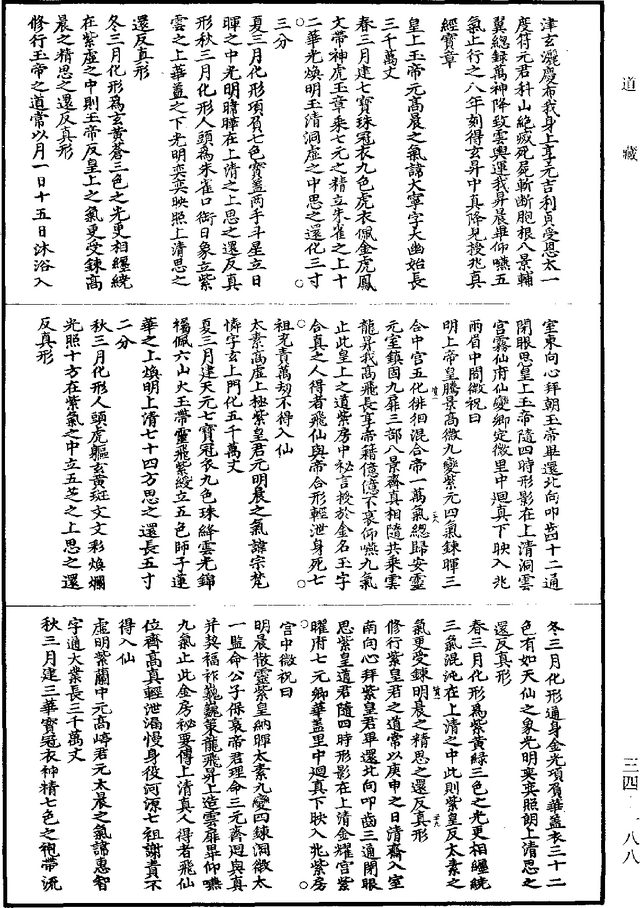 津玄灑慶布我身上享元吉利貞受恩太一
度符元君科山絕瘕死屍斬斷胞根八景輔
翼總錄萬神降致雲輿運我昇晨畢仰嚥五
氣止行之八年刻得玄昇中真降見授兆真
經寶章
皇上玉帝元高晨之氣諱大寧字大幽始長
三千萬丈
春三月建七寶珠冠衣九色虎衣佩金虎鳳
文帶神虎玉章乘七元之精立朱雀之上十
二華光煥明玉清洞虛之中思之還化三寸
三分
夏三月化形項負七色寶蓋兩手斗星立日
暉之中光明暐曄在上清之上思之還反真
形秋三月化形人頭為朱雀口銜日象立紫
雲之上華蓋之下光明奕奕映照上清思之
還反真形
冬三月化形為玄黃蒼三色之光更相纏繞
在紫虛之中則玉帝反皇上之氣更受鍊高
晨之精思之還反真形
修行玉帝之道常以月一日十五日沐浴入
室東向心拜朝玉帝畢還北向叩齒四十二通
閉眼思皇上玉帝隨四時形影在上清洞雲
宮霧仙府仙變鄉定微里中迴真下映入兆
兩眉中間微祝曰
明上帝皇騰景高微九變紫元四氣鍊暉三
合中宮五化徘徊混合帝一萬氣總歸安靈
元室鎮固九扉三部八景齊真相隨共乘雲
龍昇我高飛長享帝籍億億不衰仰嚥九氣
止此皇上之道紫房中祕言授於金名玉字
合真之人得者飛仙與帝合形輕泄身死七
祖充責萬劫不得入仙
太素高虛上極紫皇君元明晨之氣諱宗梵
憐字玄上門化五千萬丈
夏三月建天元七寶冠衣九色珠絳雲光錦
楊佩六山火玉帶靈飛紫綬立五色師子蓮
華之上煥明上清七十四方思之還長五寸
二分
秋三月化形人頭虎軀玄黃斑文文彩煥爛
光照十方在紫氣之中立五芝之上思之還
反真形
冬三月化形通身金光項負華蓋衣三十二
色有如天仙之象光明奕奕照朗上清思之
還反真形
春三月化形為紫黃綠三色之光更相纏繞
三氣混沌在上清之中此則紫皇反太素之
氣更受鍊明晨之精思之還反真形
修行紫皇君之道常以庚申之日清齋入室
南向心拜紫皇君畢還北向叩齒三通閉眼
思紫皇道君隨四時形影在上清金耀宮紫
曜府七元鄉華蓋里中迴真下映入兆紫房
宮中微祝曰
明晨散靈紫皇納暉太素九變四鍊洞微太
一監命公子保衰帝君理命三元齊迴與真
并契福祚巍巍策龍飛昇上造雲扉畢仰嚥
九氣止此金房祕要傳上清真人得者飛仙
位齊高真輕泄漏慢身役河源七祖謝責不
得入仙
虛明紫蘭中元高崎君元太晨之氣諱惠智
字通大業長三千萬丈
秋三月建三華寶冠衣神精七色之袍帶流
道藏
三四·一八八